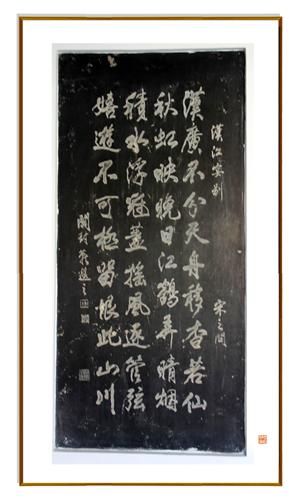 漢江宴別 宋之問
漢廣不分天舟移杳若仙
秋虹映晚日江鶴弄晴烟
積水浮冠蓋遥風逐管弦
嬉遊不可極留恨此山川
開封